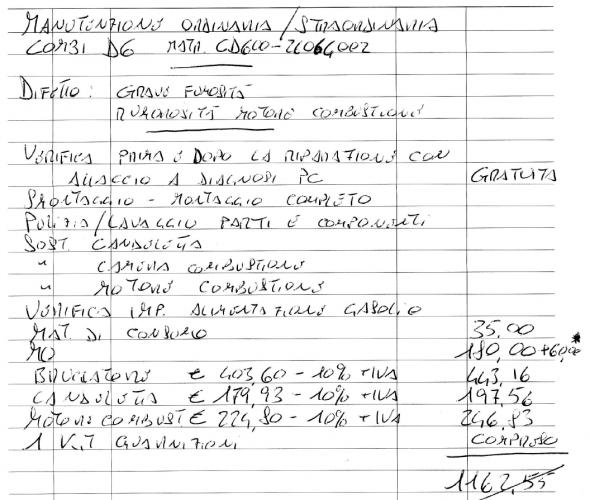 MANUTENZIONE ORDINARIA/STRAORDINARIA
COMBI D6 MATR. CD600-26064002
DIFETTO: GRAVE FUMOSITÀ
RUMOROSITÀ MOTORE COMBUSTIONE
VERIFICA PRIMA E DOPO LA RIPARAZIONE CON
ALLACCIO A DIAGNOSI PC GRATUITA
SMONTAGGIO - MONTAGGIO COMPLETO
PULIZIA/LAVAGGIO PARTI E COMPONENTI
SOST. CANDELETTA
" CAMERA COMBUSTIONE
" MOTORE COMBUSTIONE
VERIFICA IMP. ALIMENTAZIONE GASOLIO
MAT. DI CONSUMO 35,00
MO 180,00+60,00*
BRUCIATORE € 403,60 - 10% + IVA 443,16
CANDELETTA € 179,93 - 10% + IVA 197,56
MOTORE COMBUST € 224,80 - 10% + IVA 246,83
1 KIT GUARNIZIONI COMPRESO
1162,55